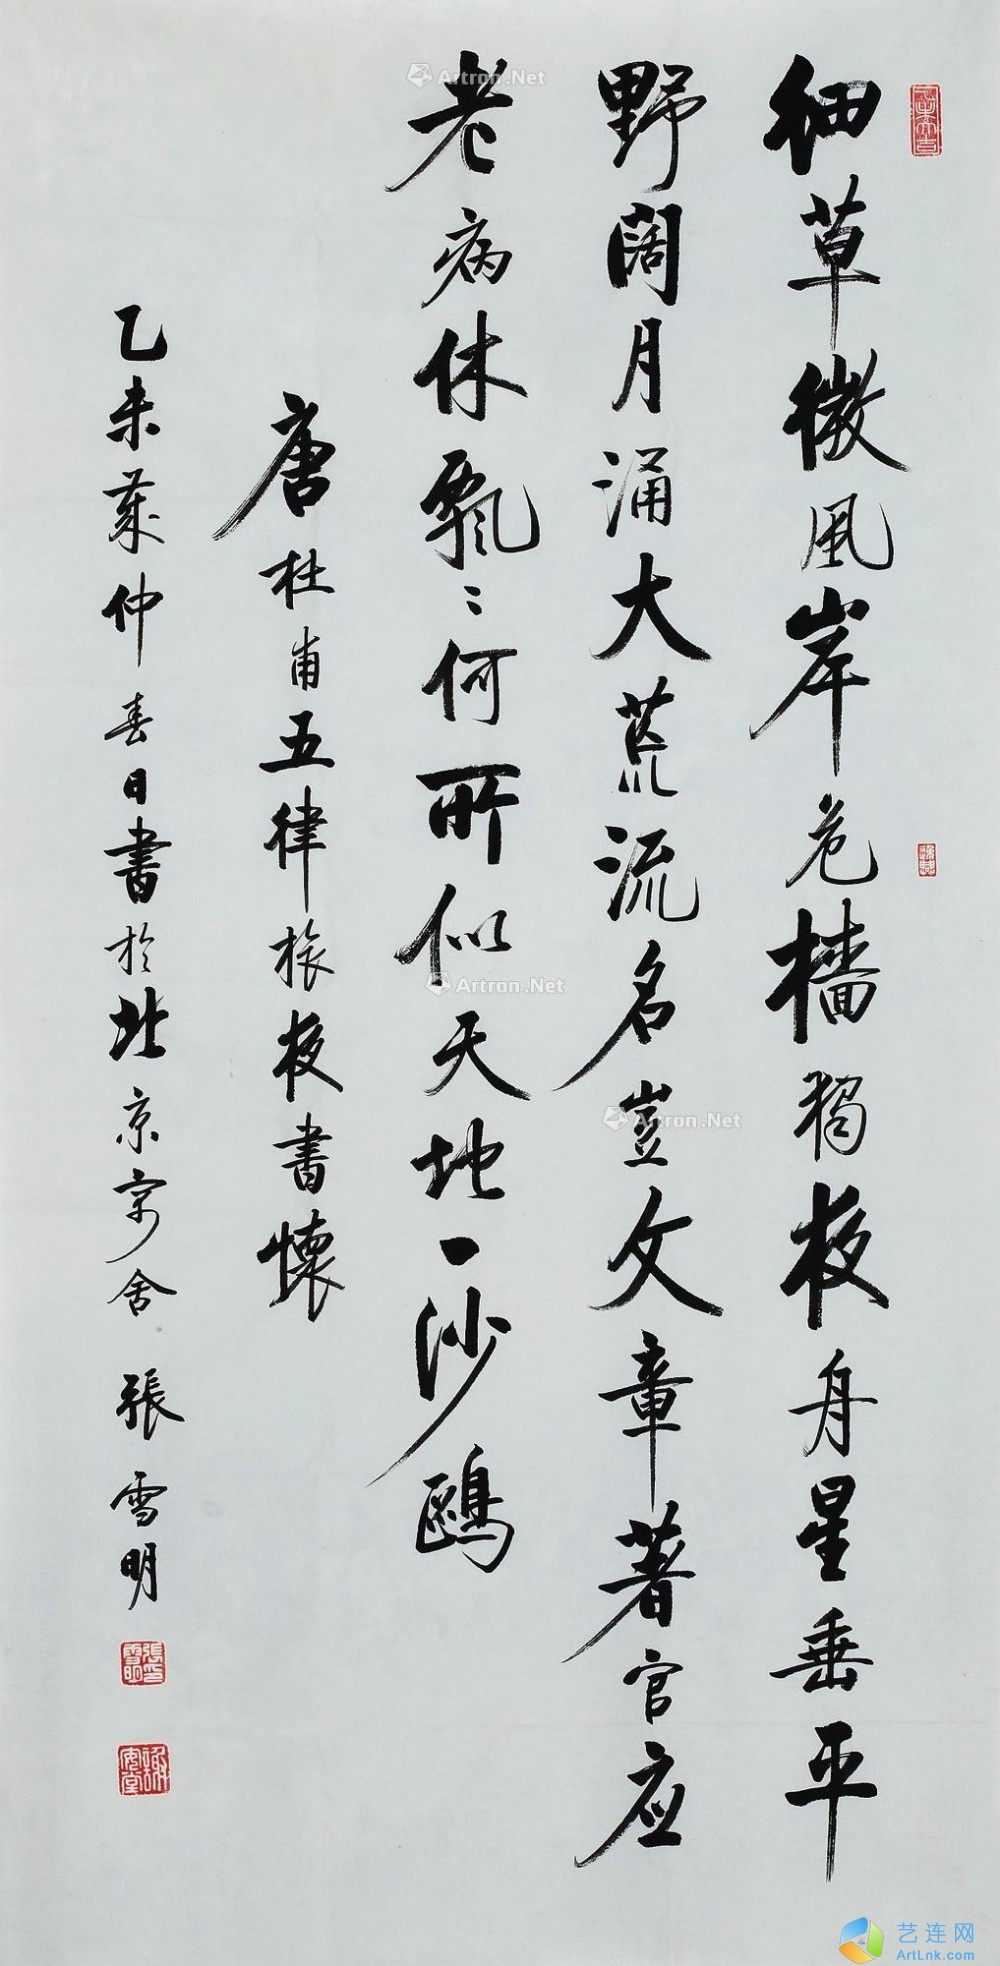 細草微風岸危檣獨夜舟星垂平
野闊月涌大荒流名豈文章著官应
老病休飄〻何所似天地一沙鷗
唐杜甫五律旅夜書懷
乙未歲仲春日書於北京寓舍 張雪明
Artron.Net
Artron.Net
Artron.Net
艺连网
ArtLnk.com